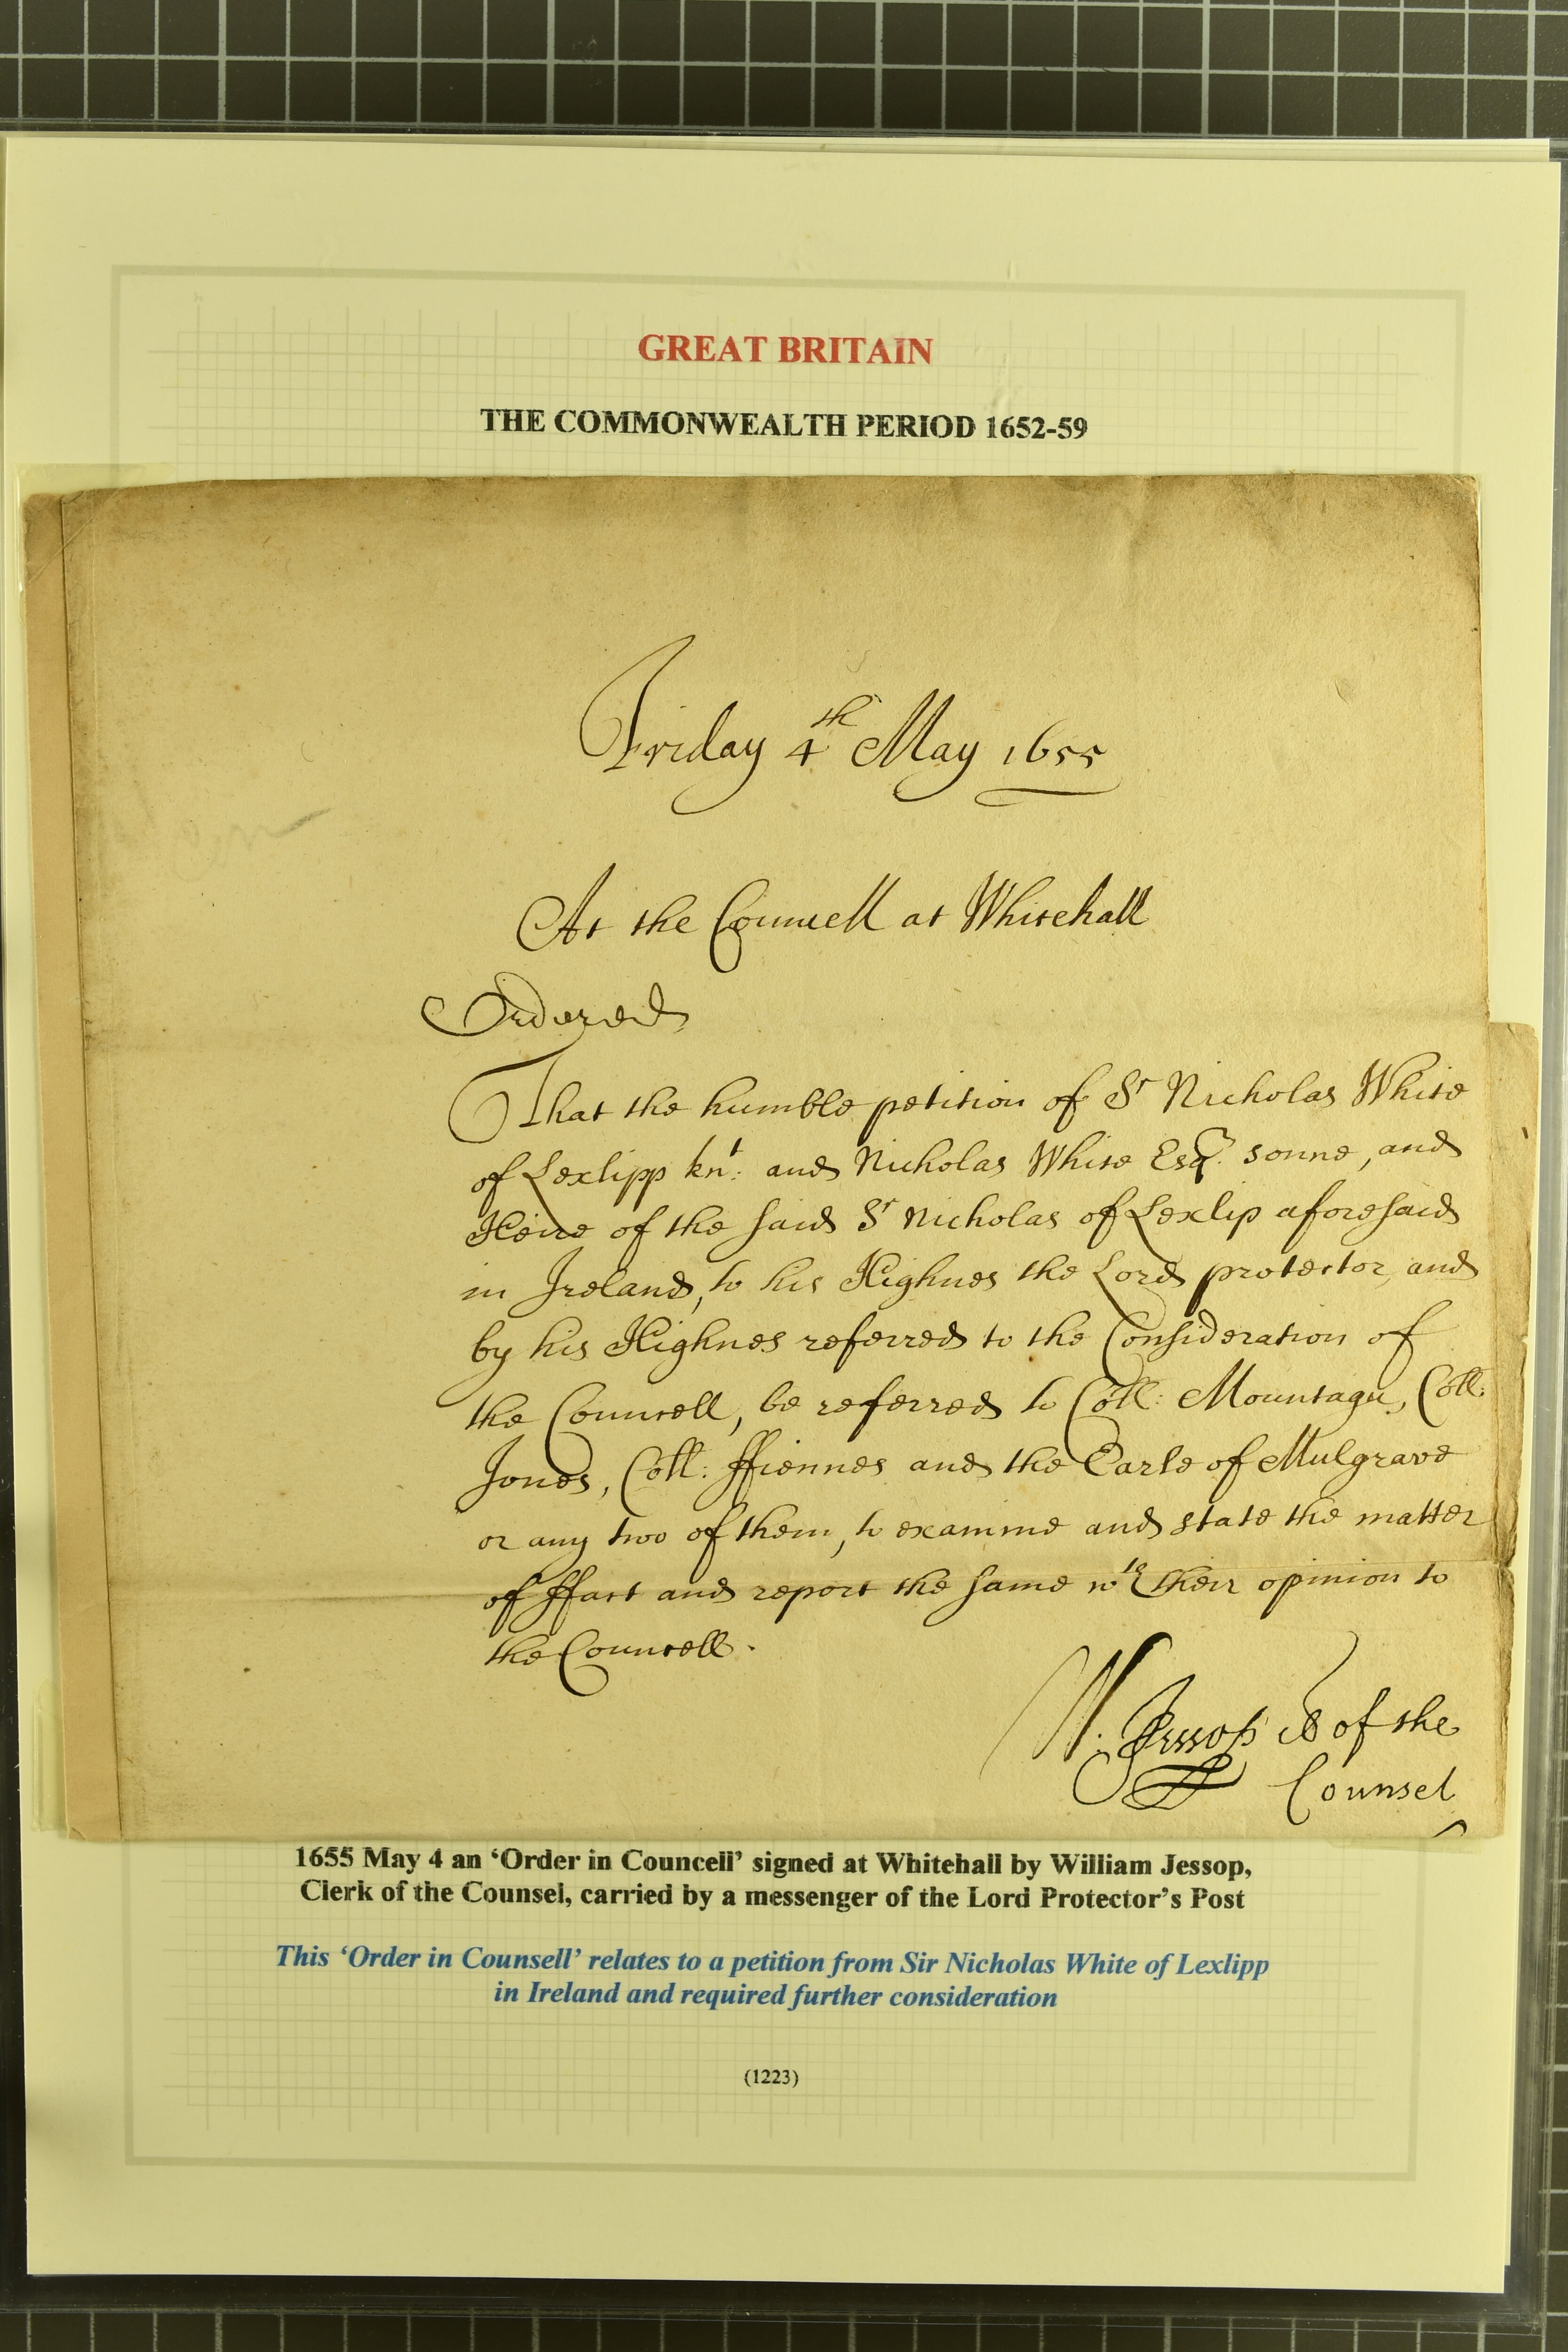 GREAT BRITAIN
THE COMMONWEALTH PERIOD 1652-59
Friday 4th May 1655
At the Councell at Whitehall
Ordered
That the humble petition of Sr Nicholas White
of Lexlipp knt: and Nicholas White Esq. sonne, and
Heire of the said Sr Nicholas of Lexlip aforesaid
in Ireland, to his Highnes the Lord protector, and
by his Highnes referred to the Consideration of
the Councell, be referred to Coll: Mountagu, Coll:
Jones, Coll: ffiennes and the Earle of Mulgrave
or any two of them, to examine and state the matter
of ffact and report the same wth their opinion to
the Councell.
W. Jessop Cl of the
Counsel
1655 May 4 an ‘Order in Councell’ signed at Whitehall by William Jessop,
Clerk of the Counsel, carried by a messenger of the Lord Protector’s Post
This ‘Order in Counsell’ relates to a petition from Sir Nicholas White of Lexlipp
in Ireland and required further consideration
(1223)